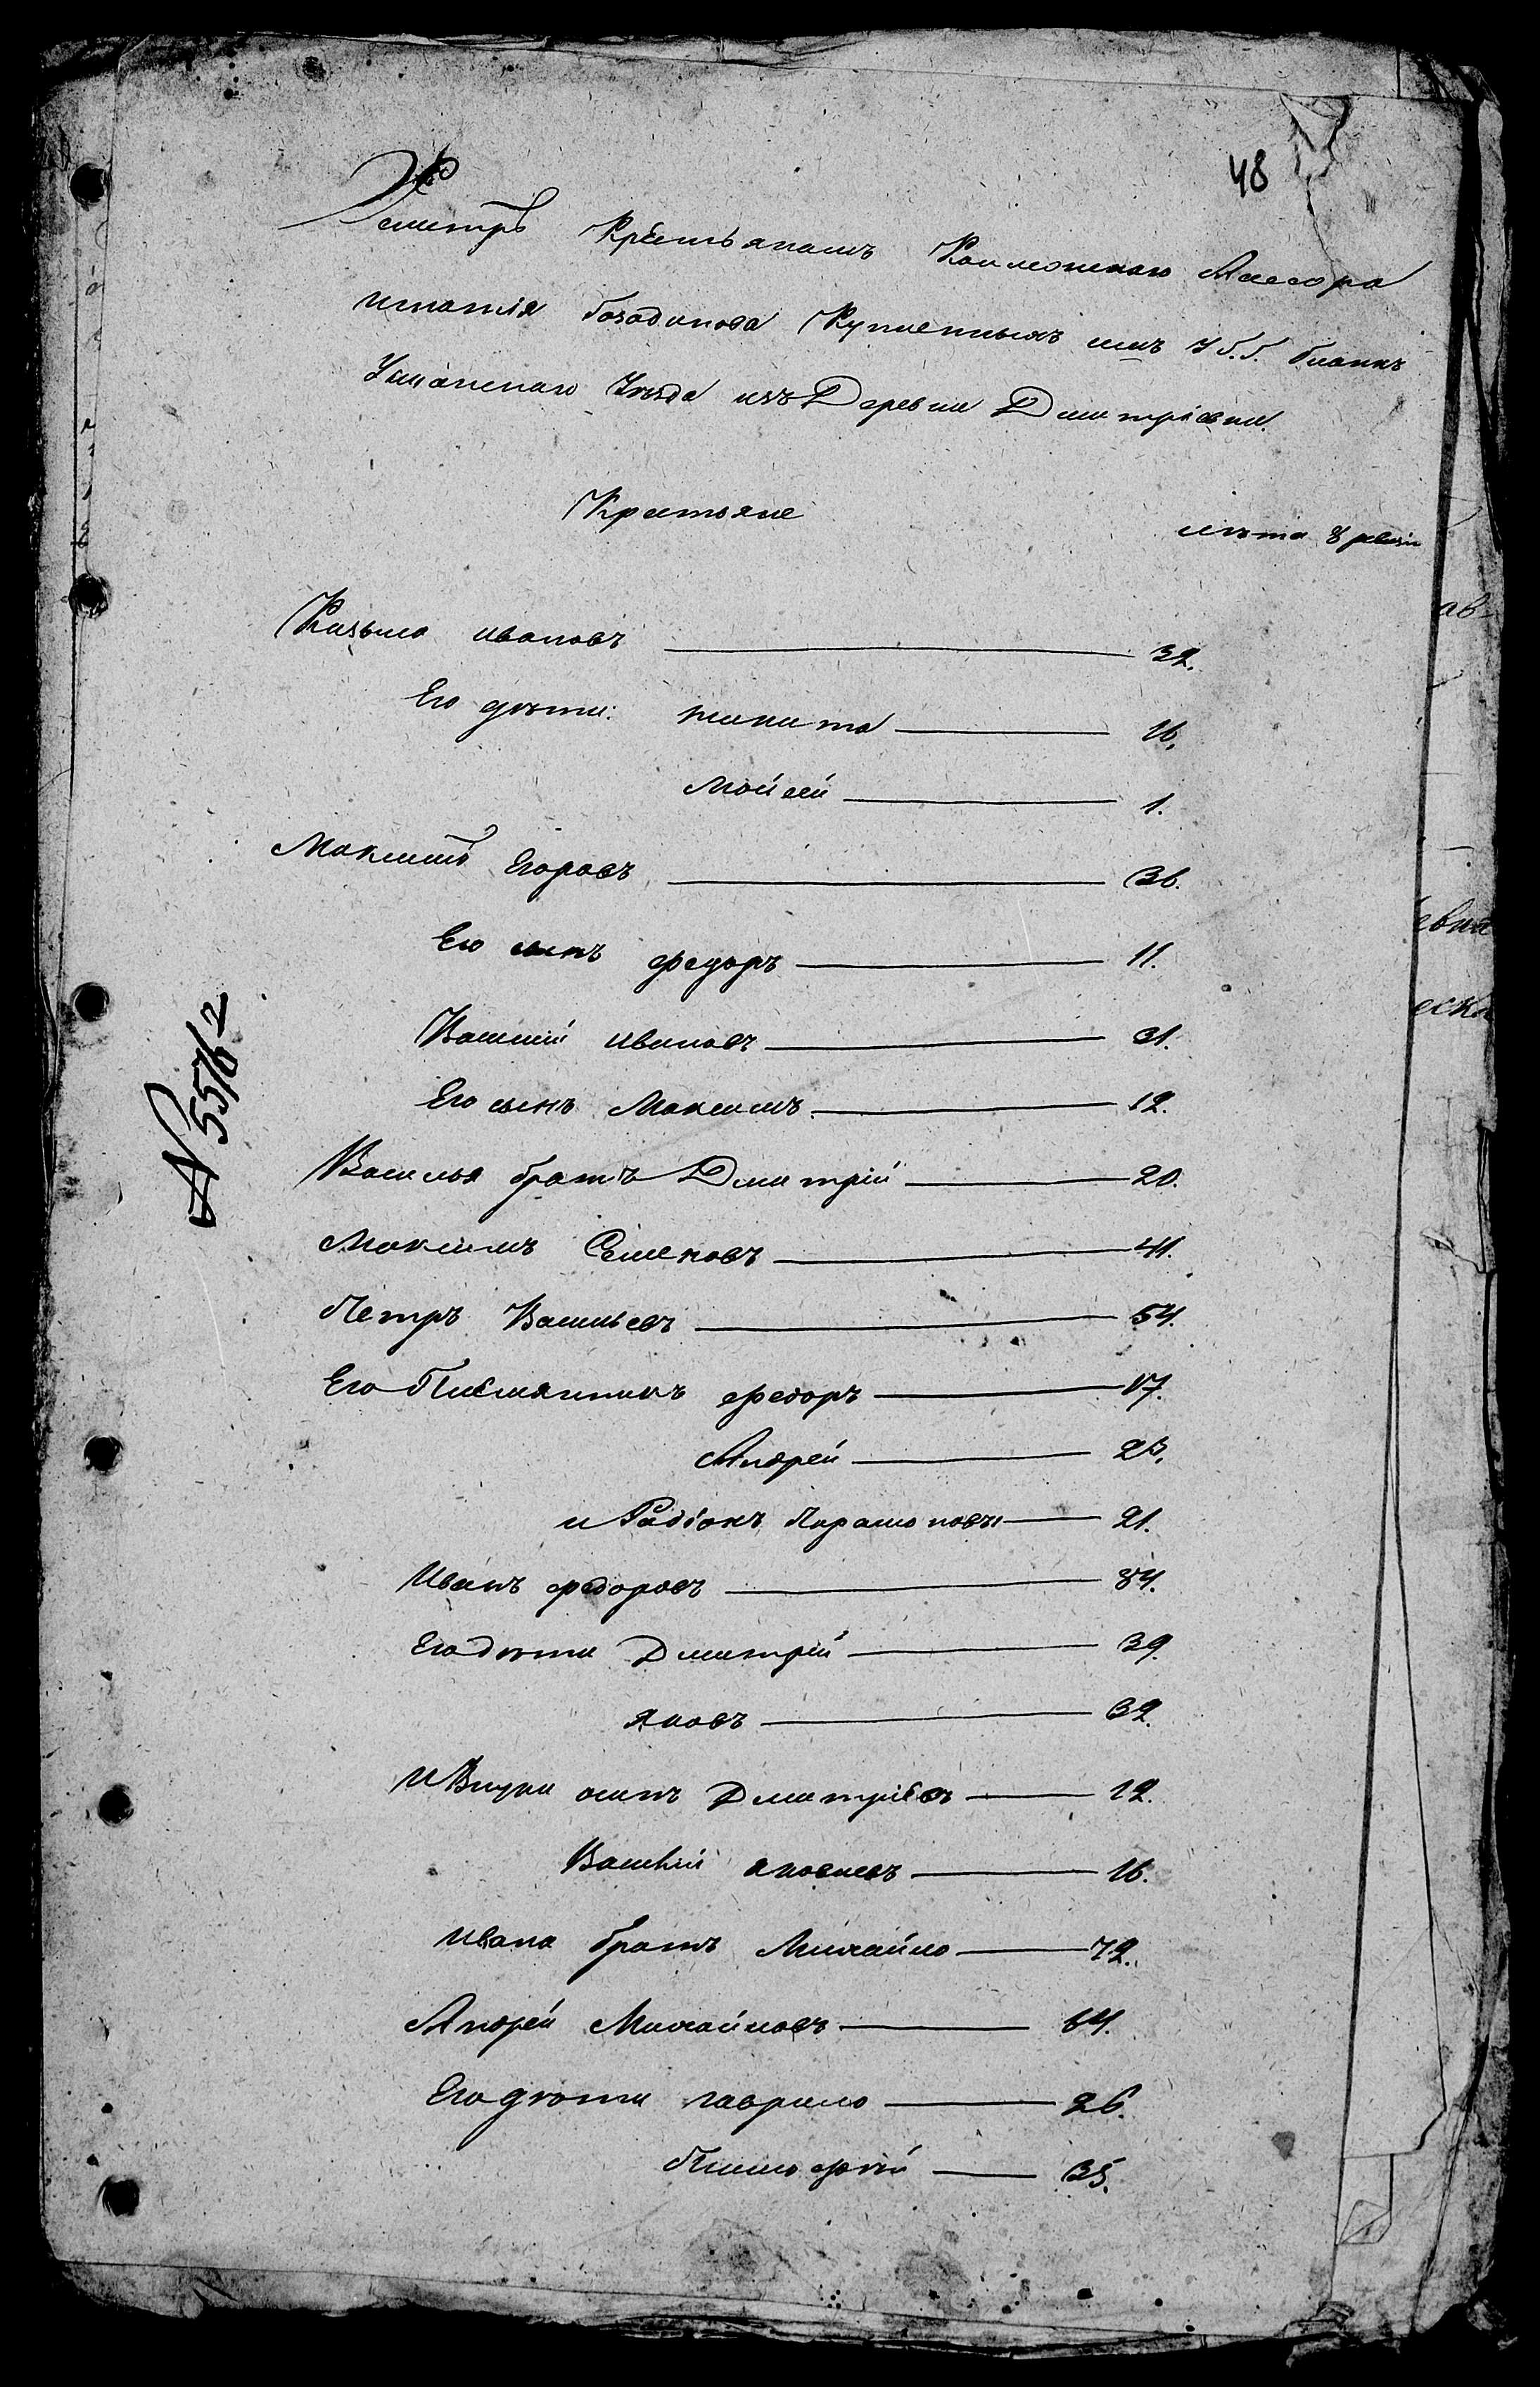 48
Реэстръ Крестьянамъ Коллежскаго Асесора
Игнатія Богданова Купленныхъ имъ У
Уманскаго Уезда изъ Деревни Дмитріевки.
Крестьяне
лѣта 8 ревизіи
Казьма ивановъ 32.
Его дѣти: никита 16.
Мойсей 1.
Максимъ Егоровъ 36.
Его сынъ федоръ 11.
Василий ивановъ 31.
Его сынъ Максимъ 12.
Василья братъ Дмитрій 20.
Максимъ Семеновъ 41.
Петръ Васильевъ 54.
Его Племянники федоръ 17.
Андрей 23.
и Радіонъ 21.
Иванъ федоровъ 84.
Его дѣти Дмитрей 39.
яковъ 32.
И Внуки осипъ Дмитріевъ 12.
Василий яковлевъ 16.
ивана братъ Михайло 72.
Андрей Михайловъ 64.
Его дѣти гаврило 26.
Тимофей 35.
N 55/62